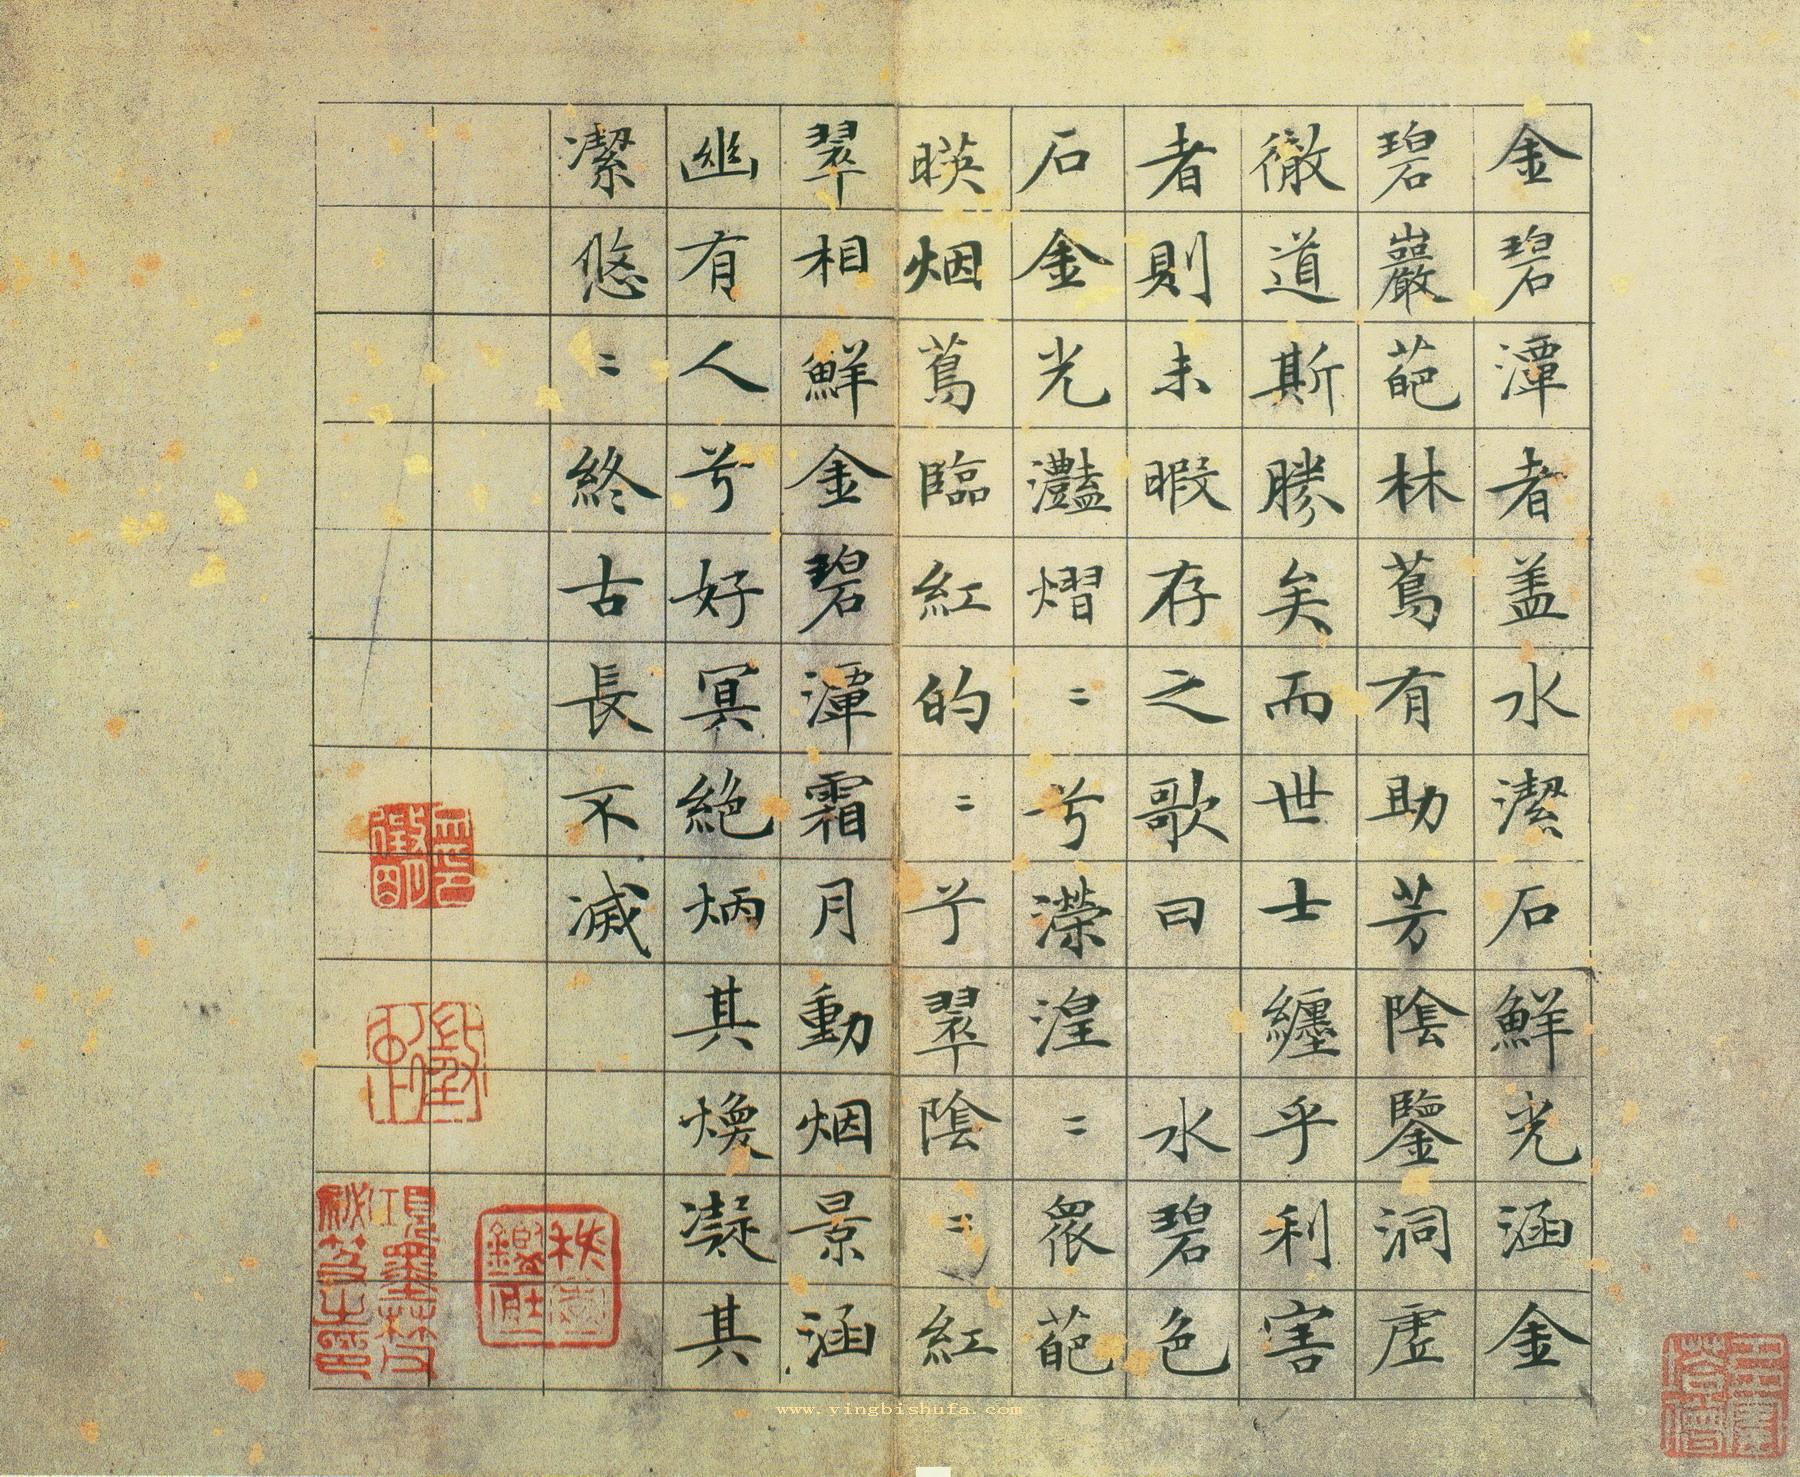 金碧潭者盖水潔石鮮光涵金
碧巖葩林蔦有助芳陰鑒洞虛
徹道斯勝矣而世士纏乎利害
者則未暇存之歌曰 水碧色
石金光灩熠〻兮濴湟〻衆葩
暎烟蔦臨紅的〻兮翠陰〻紅
翠相鮮金碧潭霜月動烟景涵
幽有人兮好冥絶炳其煥凝其
潔悠〻終古長不滅
項墨林父
祕笈之印
www.yingbishufa.com